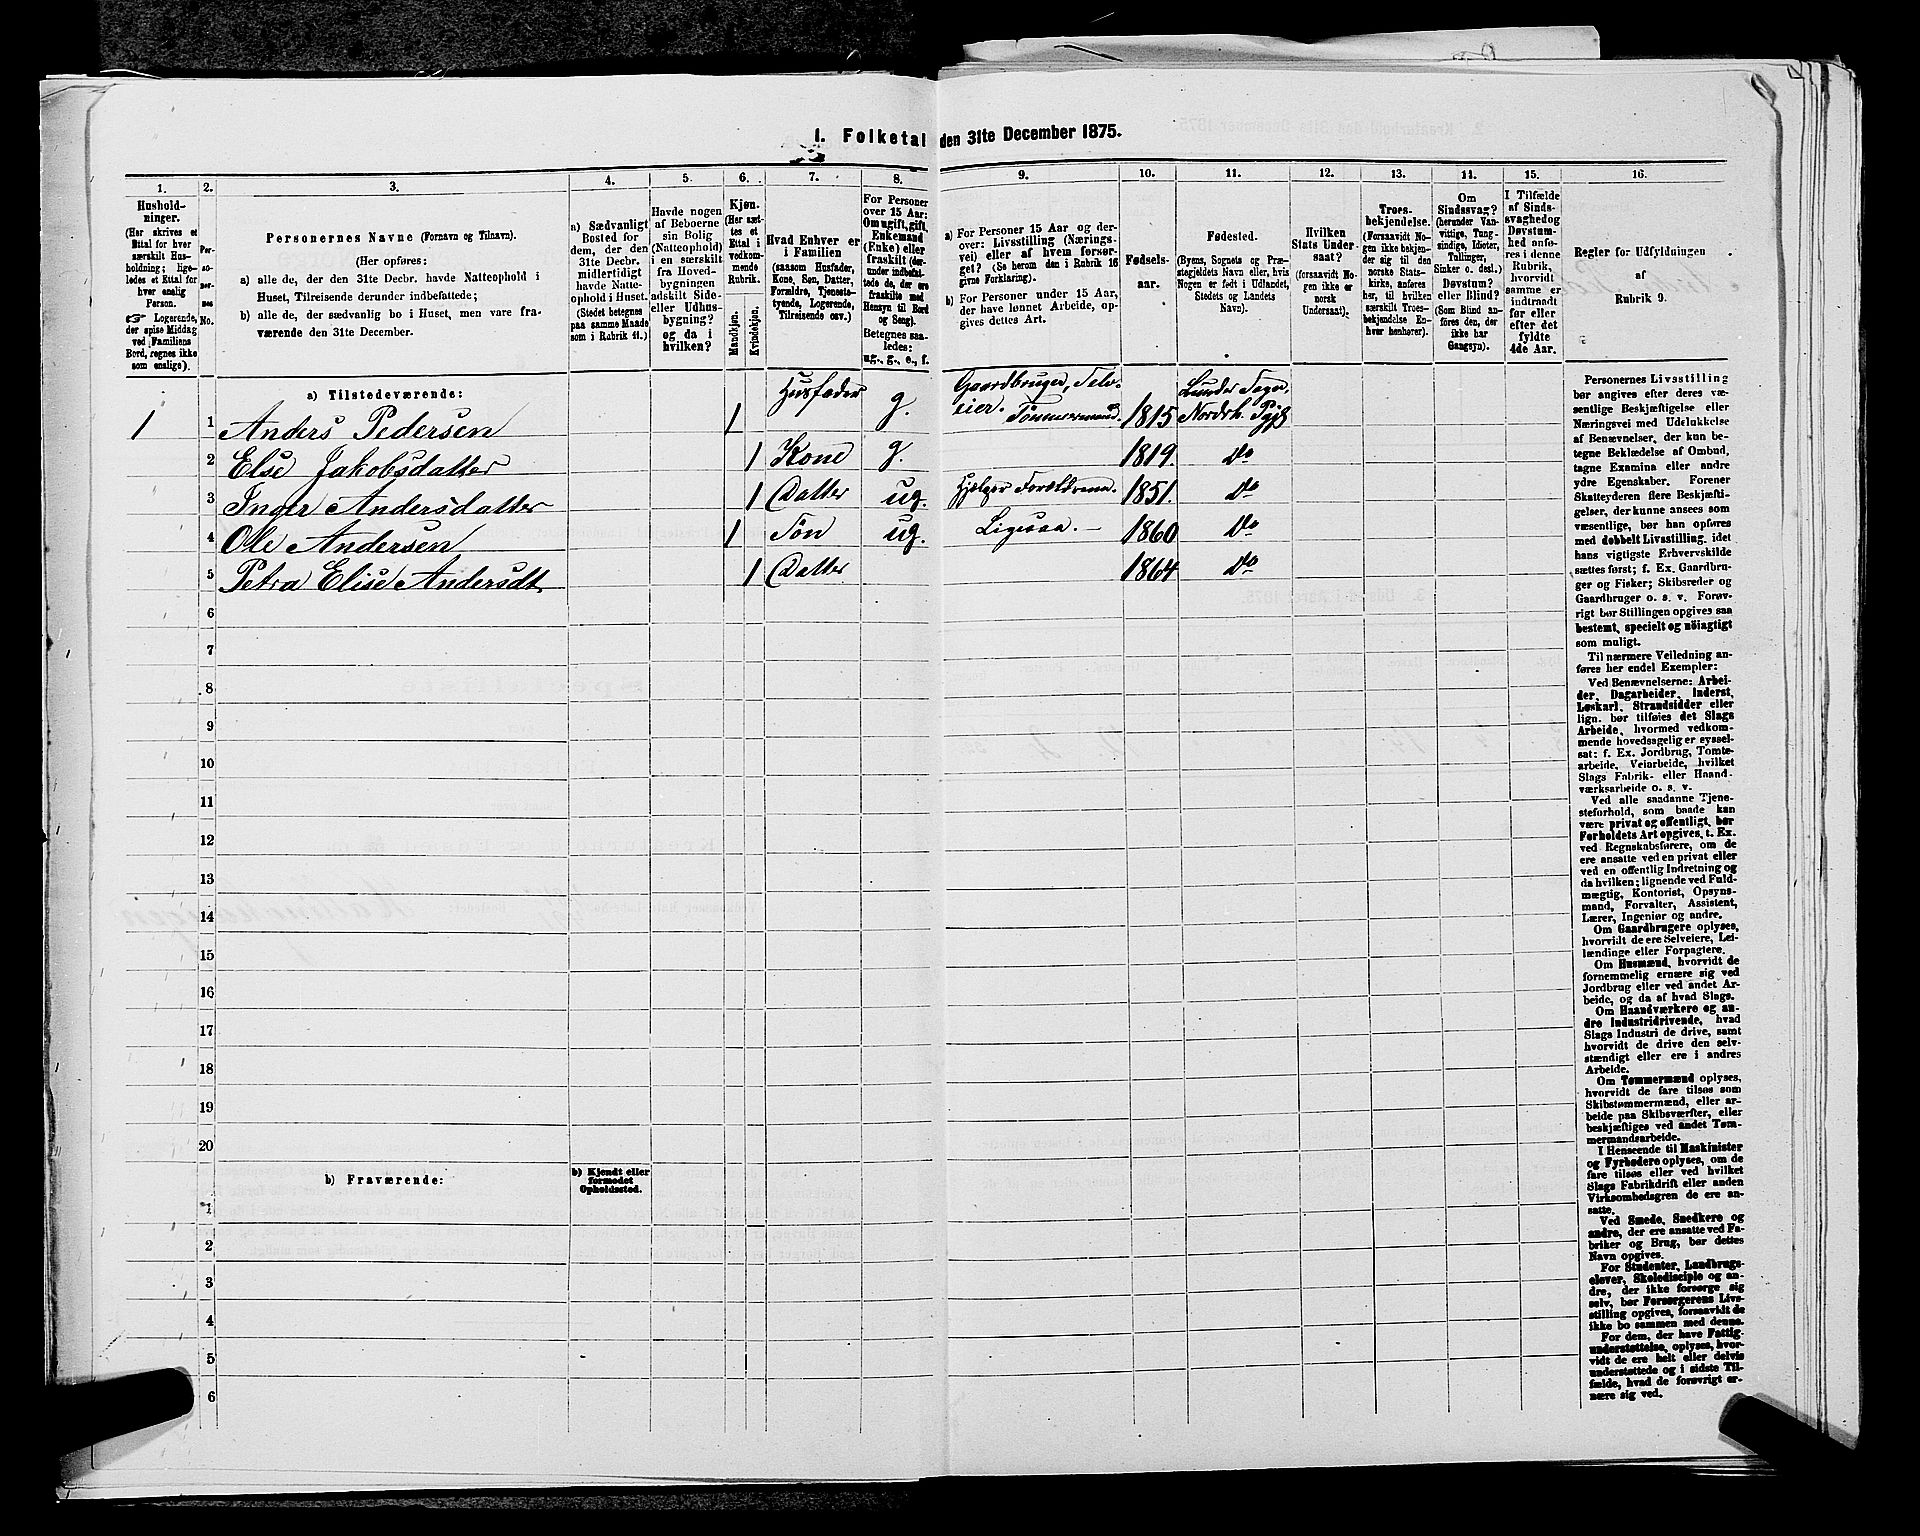 1. Folketal den 31te December 1875.
1.
2.
3.
4.
5.
6.
7.
8.
9.
10.
11.
12.
13.
14.
15.
16.
Hushold-
ninger.
(Her skrives et
Ettal for hver
særskilt Hus-
holdning; lige-
ledes et Ettal for
hver enslig
Person.
☞ Logerende,
der spise Middag
ved Familiens
Bord, regnes ikke
som enslige).
Per-
so-
ner-
nes
No.
Personernes Navne (Fornavn og Tilnavn).
(Her opføres:
a) alle de, der den 31te Decbr. havde Natteophold i
Huset, Tilreisende derunder indbefattede;
b) alle de, der sædvanlig bo i Huset, men vare fra-
værende den 31te December.
a) Sædvanligt
Bosted for
dem, der den
31te Decbr.
midlertidigt
havde Natte-
ophold i Huset.
(Stedet betegnes
paa samme Maade
som i Rubrik 11.)
Havde nogen
af Beboerne
sin Bolig
(Natteophold)
i en særskilt
fra Hoved-
bygningen
adskilt Side-
eller Udhus-
bygning?
og da i
hvilken?
Kjøn.
(Her sæt-
tes et
Ettal i
vedkom-
mende
Rubrik.
Mandkjøn.
Kvindekjøn.
Hvad Enhver er
i Familien
(saasom Husfader,
Kone, Søn, Datter,
Forældre, Tjeneste-
tyende, Logerende,
Tilreisende osv.)
For Personer
over 15 Aar:
Om ugift, gift,
Enkemand
(Enke) eller
fraskilt (der-
under indbefat-
tede de, der ere
fraskilte med
Hensyn til Bord
og Seng).
Betegnes saa-
ledes:
ug., g., e., f.
a) For Personer 15 Aar og der-
over: Livsstilling (Nærings-
vei) eller af hvem forsør-
get? (Se herom den i Rubrik 16
givne Forklaring).
b) For Personer under 15 Aar,
der have lønnet Arbeide, op-
gives dettes Art.
Fødsels-
aar.
Fødested.
(Byens, Sognets og Præ-
stegjeldets Navn eller, hvis
Nogen er født i Udlandet,
Stedets og Landets
Navn).
Hvilken
Stats Under-
saat?
(forsaavidt No-
gen ikke er
norsk
Undersaat).
Troes-
bekjendelse.
(Forsaavidt No-
gen ikke bekjen-
der sig til den
norske Stats-
kirke, anføres
her, til hvilken
særskilt Troes-
bekjendelse En-
hver henhører).
Om
Sindssvag?
(herunder Van-
vittige, Tung-
sindige, Idioter,
Tullinger,
Sinker o. desl.)
Døvstum?
eller Blind?
(Som Blind an-
føres den, der
ikke har
Gangsyn).
I Tilfælde
af Sinds-
svaghed og
Døvstum-
hed anfø-
res i denne
Rubrik,
hvorvidt
samme er
indtraadt
før eller
efter det
fyldte
4de Aar.
Regler for Udfyldningen
af
Rubrik 9.
a) Tilstedeværende:
1 1 Anders Pedersen 1 Husfader g. Gaardbruger, Selv-
eier. Tømmermand. 1815 Lunder Sogn,
Nordrh. Pgjd
2 Else Jakobsdatter 1 Kone g. 1819. Do
3 Inger Andersdatter 1 Datter ug. Hjelper Forældrene. 1851. Do
4 Ole Andersen 1 Søn ug. Ligesaa. — 1860 Do
5 Petra Elise Andersdt. 1 Datter 1864 Do
6
7
8
9
10
11
12
13
14
15
16
17
18
19
20
b) Fraværende:
b) Kjendt eller
formodet
Opholdssted.
1
2
3
4
5
6
Personernes Livsstilling
bør angives efter deres væ-
sentlige Beskjæftigelse eller
Næringsvei med Udelukkelse
af Benævnelser, der kun be-
tegne Beklædelse af Ombud,
tagne Examina eller andre
ydre Egenskaber. Forener
Skatteyderen flere Beskjæfti-
gelser, der kunne ansees som
væsentlige, bør han opføres
med dobbelt Livsstilling, idet
hans vigtigste Erhvervskilde
sættes først; f. Ex. Gaardbru-
ger og Fisker; Skibsreder og
Gaardbruger o. s. v. Forøv-
rigt bør Stillingen opgives saa
bestemt, specielt og nøiagtigt
som muligt.
Til nærmere Veiledning an-
føres her endel Exempler:
Ved Benævnelserne: Arbei-
der, Dagarbeider, Inderst,
Løskarl, Strandsidder eller
lign. bør tilføies det Slags
Arbeide, hvormed vedkom-
mende hovedsagelig er syssel-
sat; f. Ex. Jordbrug, Tomte-
arbeide, Veiarbeide, hvilket
Slags Fabrik- eller Haand-
værksarbeide o. s. v.
Ved alle saadanne Tjene-
steforhold, som baade kan
være privat og offentligt, bør
Forholdets Art opgives, t. Ex.
ved Regnskabsførere, om de
ere ansatte ved en privat eller
ved en offentlig Indretning og
da hvilken; lignende ved Fuld-
mægtig, Kontorist, Opsyns-
mand, Forvalter, Assistent,
Lærer, Ingeniør og andre.
Om Gaardbrugere oplyses,
hvorvidt de ere Selveiere, Lei-
lændinge eller Forpagtere.
Om Husmænd, hvorvidt de
fornemmelig ernære sig ved
Jordbrug eller ved andet Ar-
beide, og da af hvad Slags.
Om Haandværkere og an-
dre Industridrivende, hvad
Slags Industri de drive, samt
hvorvidt de drive den selv-
stændigt eller ere i andres
Arbeide.
Om Tømmermænd oplyses,
hvorvidt de fare tilsøs som
Skibstømmermænd, eller ar-
beide paa Skibsværfter, eller
beskjæftiges ved andet Tøm-
mermandsarbeide.
I Henseende til Maskinister
og Fyrbødere oplyses, om de
fare tilsøs eller ved hvilket
Slags Fabrikdrift eller anden
Virksomhedsgren de ere an-
satte.
Ved Smede, Snedkere og
andre, der ere ansatte ved Fa-
briker og Brug, bør dettes
Navn opgives.
For Studenter, Landbrugs-
elever, Skoledisciple og an-
dre, der ikke forsørge sig
selv, bør Forsørgerens Livs-
stilling opgives, forsaavidt de
ikke bo sammen med denne.
For dem, der have Fattig-
understøttelse, oplyses, hvor-
vidt de ere helt eller delvis
understøttede og i sidste Til-
fælde, hvad de forøvrigt er-
nære sig ved.